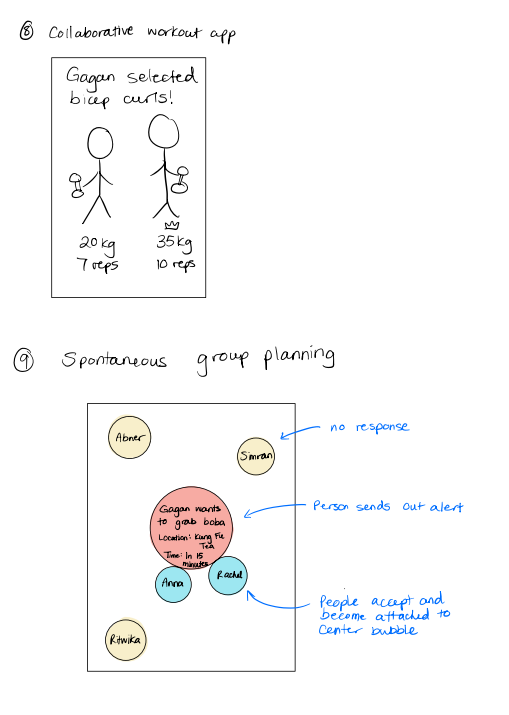 ⑧ Collaborative workout app
Gagan selected
bicep curls!
20 kg
7 reps
35 kg
10 reps
⑨ Spontaneous group planning
Abner
Simran
no response
Gagan wants
to grab boba
Location: Kung Fu
Tea
Time: In 15
minutes
Person sends out alert
Anna
Rachel
People accept and
become attached to
center bubble
Ritwika